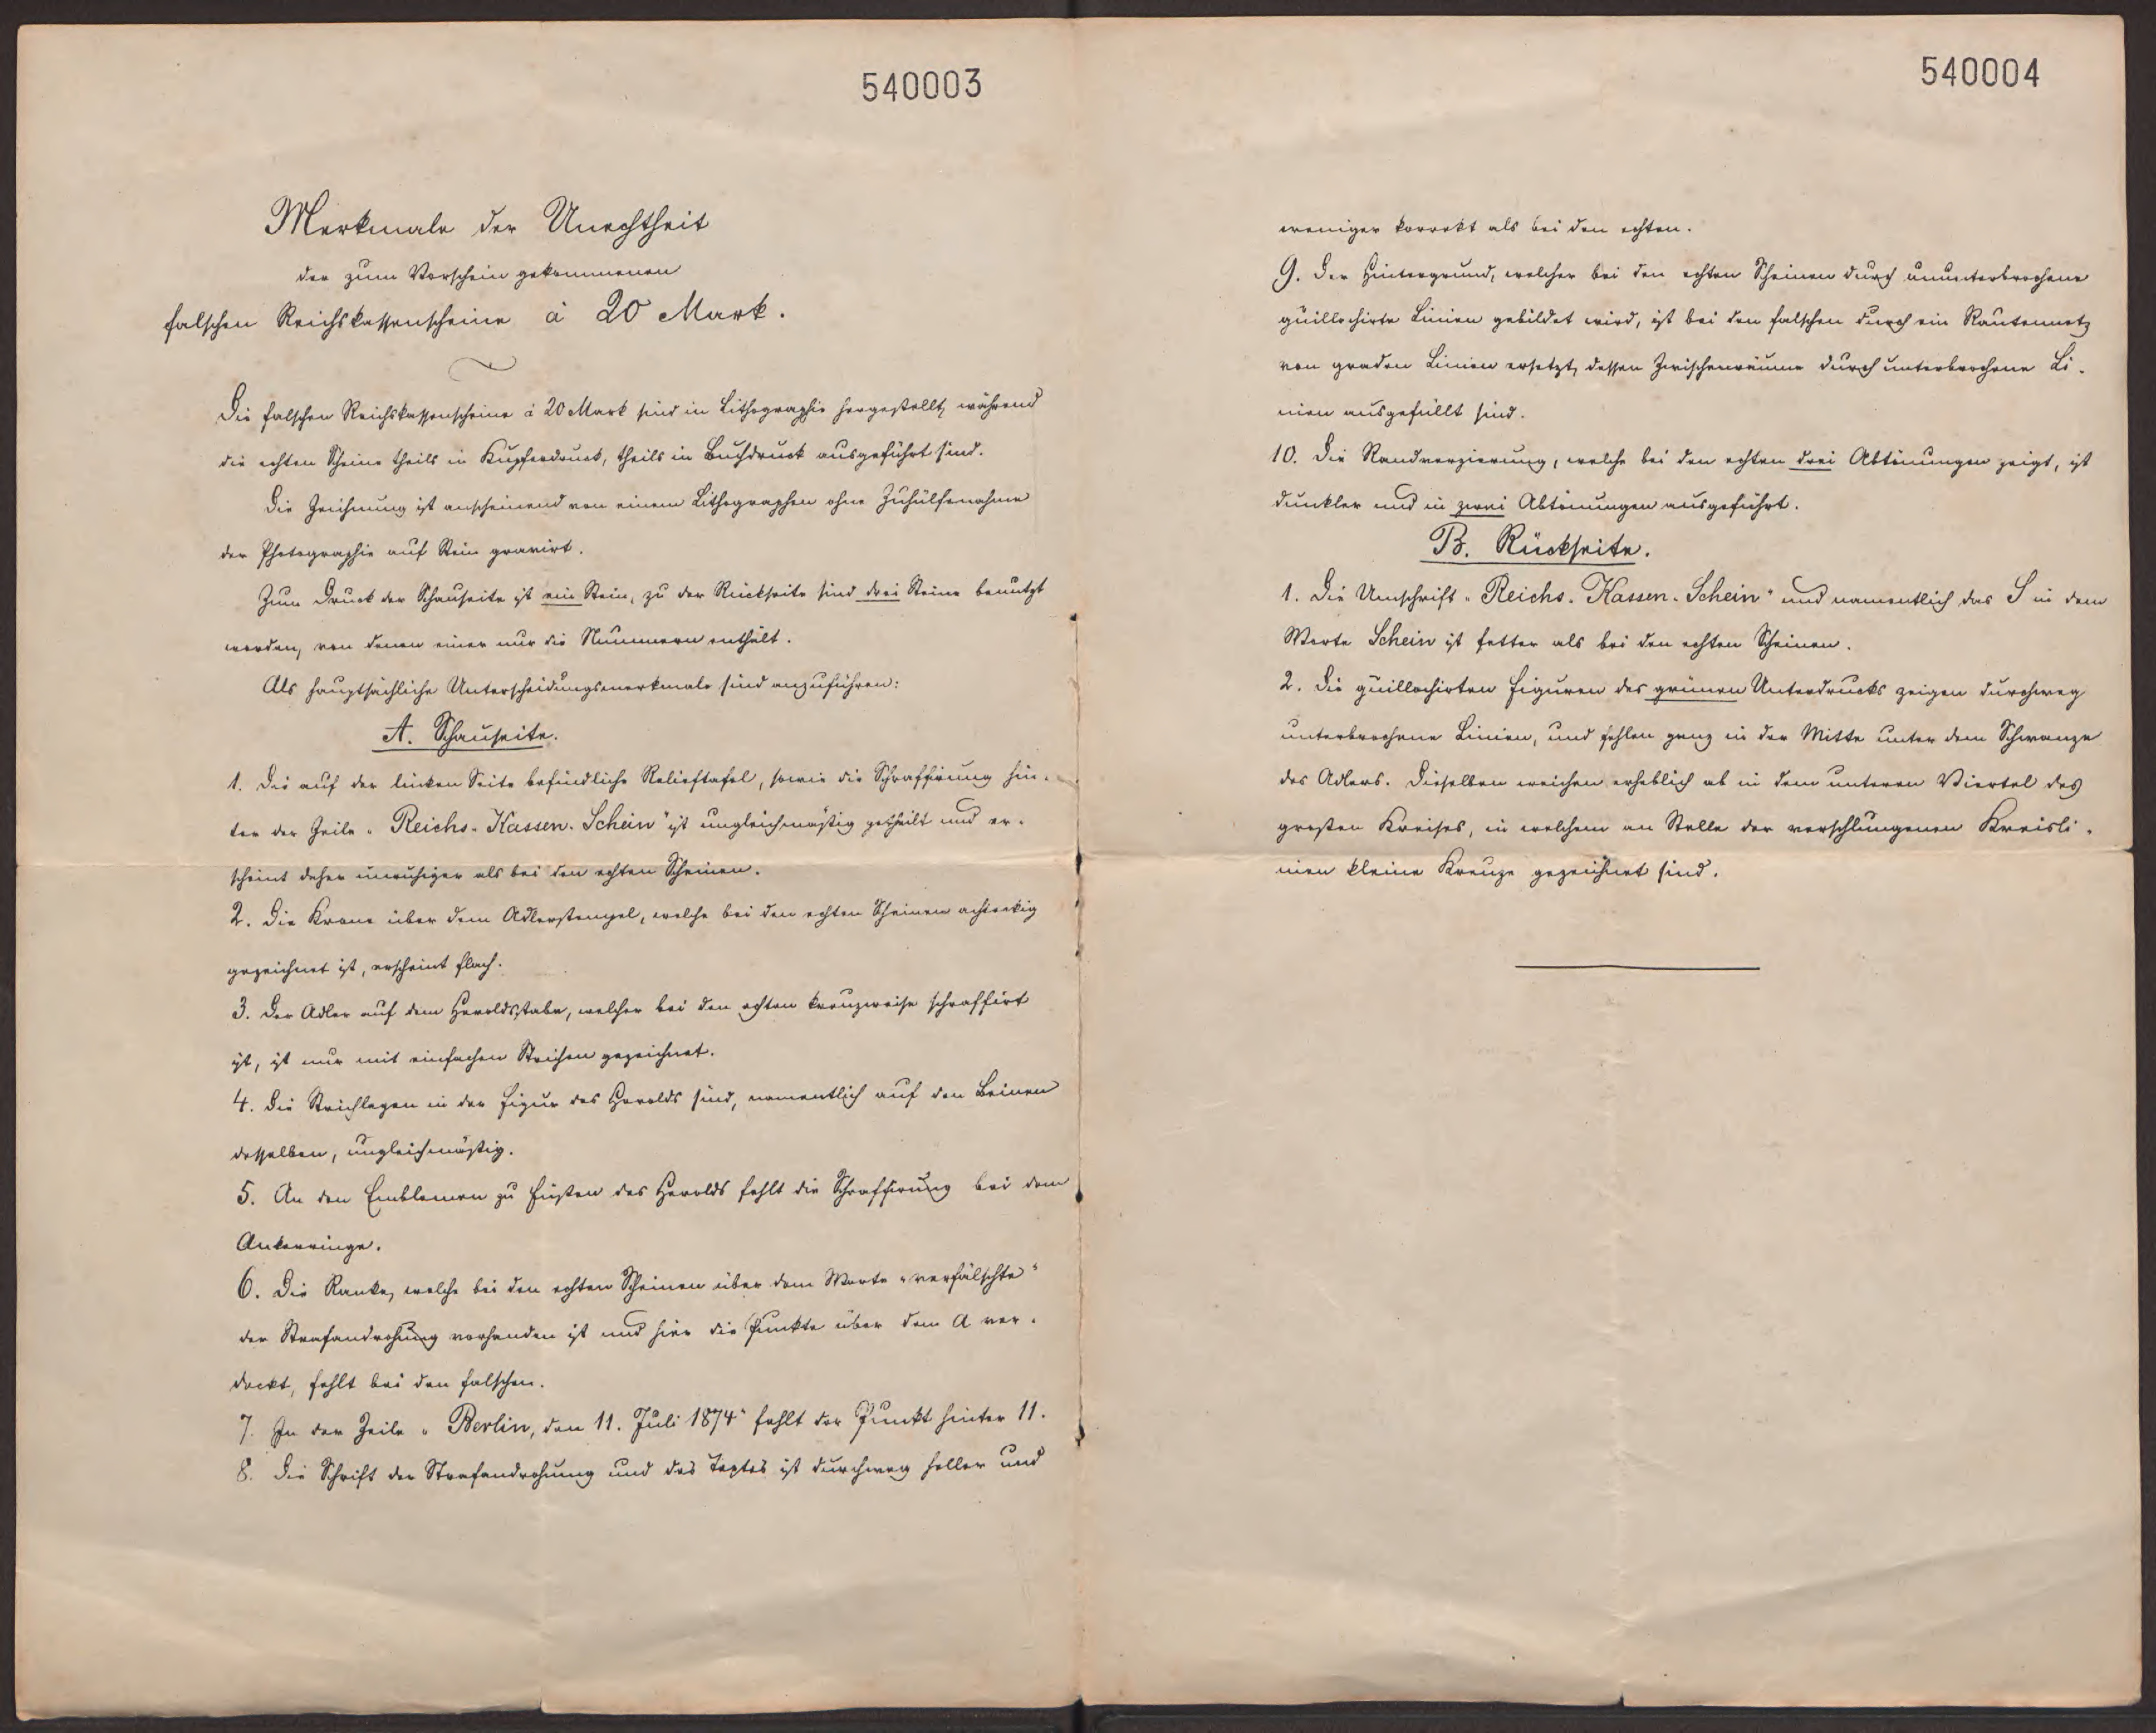 540003
Merkmale der Unechtheit
der zum Vorschein gekommenen
falschen Reichskassenscheine à 20 Mark.
Die falschen Reichskassenscheine à 20 Mark sind in Lithographie hergestellt, während
die echten Scheine theils in Kupferdruck, theils in Buchdruck ausgeführt sind.
Die Zeichnung ist anscheinend von einem Lithographen ohne Zuhülfenahme
der Photographie auf Stein gravirt.
Zum Druck der Schauseite ist ein Stein, zu der Rückseite sind drei Steine benutzt
worden, von denen einer nur die Nummern enthält.
Als hauptsächliche Unterscheidungsmerkmale sind anzuführen:
A. Schauseite.
1. Die auf der linken Seite befindliche Relieftafel, sowie die Schraffirung hin-
ter der Zeile „Reichs-Kassen-Schein" ist ungleichmäßig getheilt und er-
scheint daher unruhiger als bei den echten Scheinen.
2. Die Krone über dem Adlerstempel, welche bei den echten Scheinen achteckig
gezeichnet ist, erscheint flach.
3. Der Adler auf dem Heroldsstabe, welcher bei den echten kreuzweise schraffirt
ist, ist nur mit einfachen Strichen gezeichnet.
4. Die Strichlagen in der Figur des Herolds sind, namentlich auf den Beinen
desselben, ungleichmäßig.
5. An den Emblemen zu Füßen des Herolds fehlt die Schraffirung bei dem
Ankerringe.
6. Die Ranke, welche bei den echten Scheinen über dem Worte „verfälschte"
der Strafandrohung vorhanden ist und hier die Punkte über dem A ver-
deckt, fehlt bei den falschen.
7. In der Zeile „Berlin, den 11. Juli 1874" fehlt der Punkt hinter 11.
8. Die Schrift der Strafandrohung und des Textes ist durchweg heller und
540004
weniger korrekt als bei den echten.
9. Der Hintergrund, welcher bei den echten Scheinen durch ununterbrochene
guillochirte Linien gebildet wird, ist bei den falschen durch ein Rautennetz
von graden Linien ersetzt, dessen Zwischenräume durch unterbrochene Li-
nien ausgefüllt sind.
10. Die Randverzierung, welche bei den echten drei Abtönungen zeigt, ist
dunkler und in zwei Abtönungen ausgeführt.
B. Rückseite.
1. Die Umschrift „Reichs-Kassen-Schein" und namentlich das S in dem
Worte Schein ist fetter als bei den echten Scheinen.
2. Die guillochirten Figuren des grünen Unterdrucks zeigen durchweg
unterbrochene Linien, und fehlen ganz in der Mitte unter dem Schwanze
des Adlers. Dieselben weichen erheblich ab in dem unteren Viertel des
großen Kreises, in welchem an Stelle der verschlungenen Kreisli-
nien kleine Kreuze gezeichnet sind.